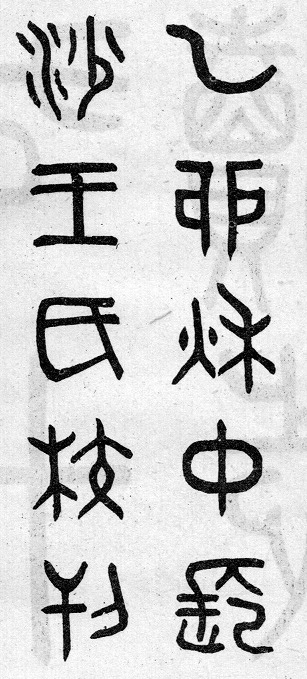 乙卯秋中
沙王氏校刊